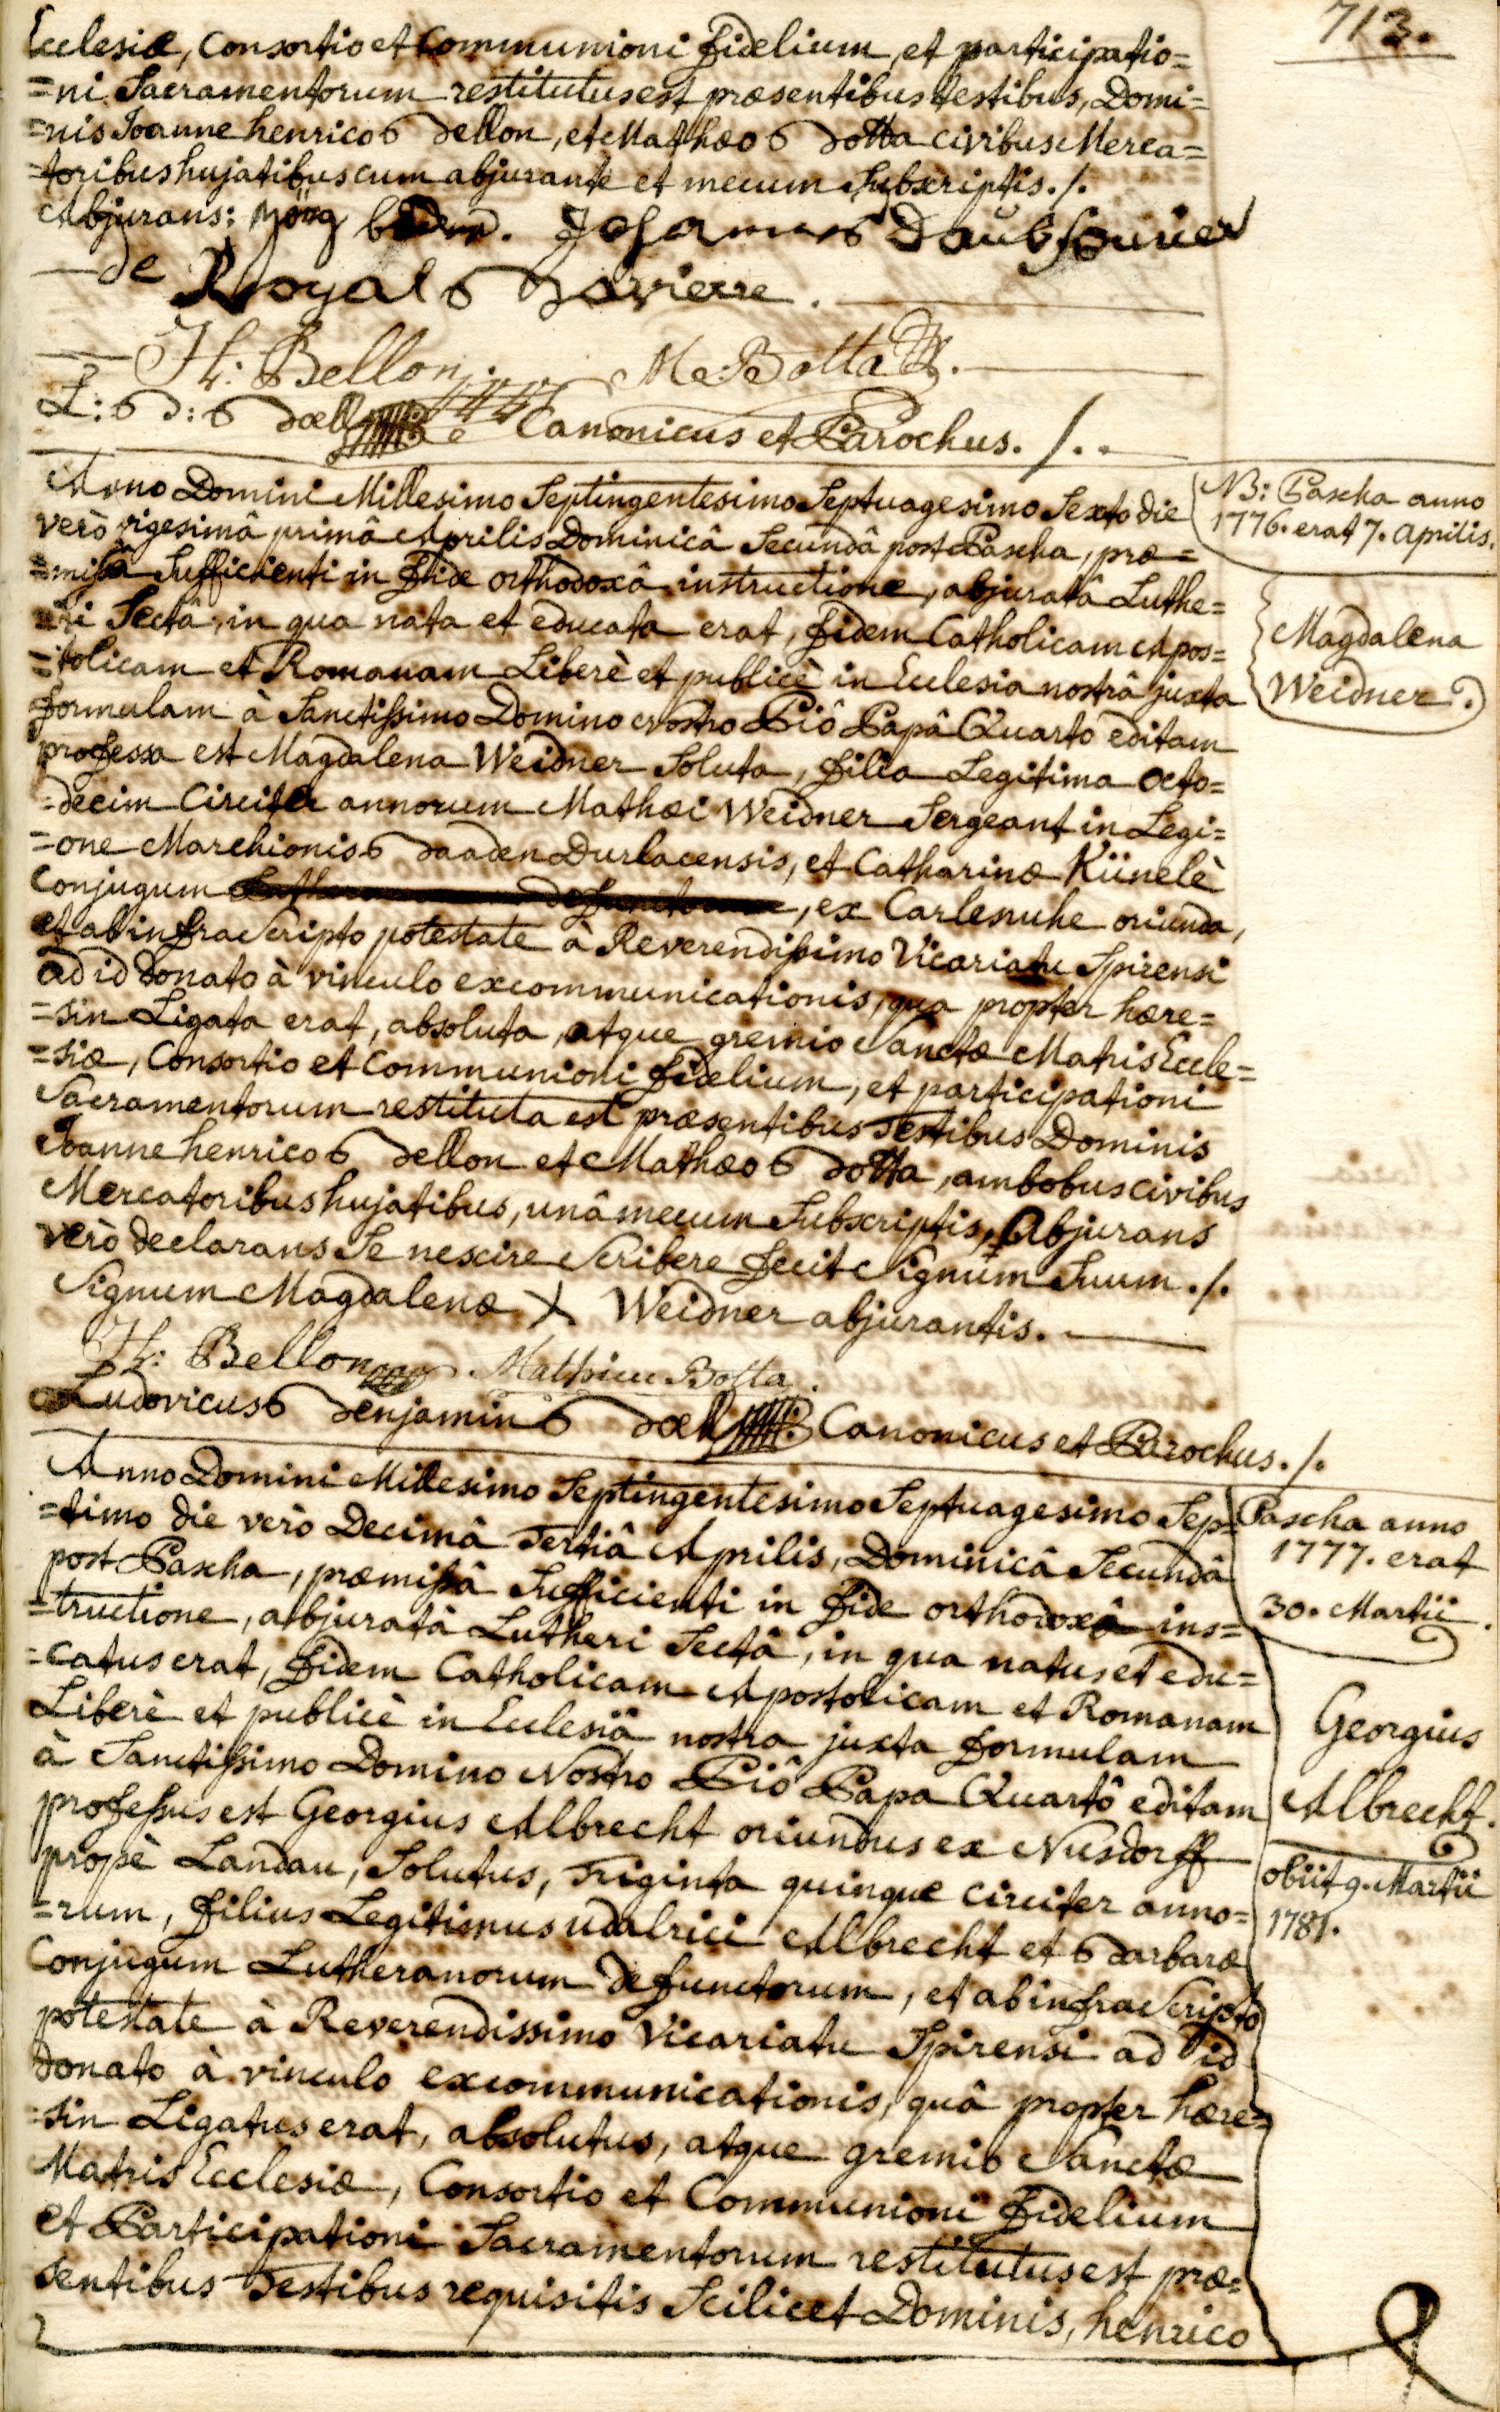 713.
Ecclesiæ, Consortio et Communioni fidelium, et participatio=
=ni Sacramentorum restitutus est præsentibus testibus, Domi=
=nis Joanne henrico Bellon, et Mathæo Botta civibus Merca=
=toribus hujatibus cum abjurante et mecum Subscriptis./.
Abjurans: Johannes
de Royal Bavierre.
H: Bellon. M: Botta
L: B: Bœll Canonicus et Parochus./.
Anno Domini Millesimo Septingentesimo Septuagesimo Sexto die
verò vigesimâ primâ Aprilis Dominicâ Secundâ post Pascha, præ=
=missâ Sufficienti in fide orthodoxâ instructione, abjuratâ Luthe=
=ri Sectâ, in qua nata et educata erat, fidem Catholicam Apos=
=tolicam et Romanam Liberè et publicè in Ecclesia nostrâ juxta
formulam à Sanctissimo Domino nostro Piô Papâ Quarto editam
professa est Magdalena Weidner Soluta, filia Legitima Octo=
=decim Circiter annorum Mathæi Weidner Sergeant in Legi=
=one Marchionis Baaden Durlacensis, et Catharinæ Künelè
Conjugum, ex Carlesruhe oriunda,
et ab infra Scripto potestate à Reverendissimo Vicariatu Spirensi
ad id donato à vinculo excommunicationis, qua propter hære=
=sin Ligata erat, absoluta, atque gremio Sanctæ Matris Eccle=
=siæ, Consortio et Communioni fidelium, et participationi
Sacramentorum restituta est præsentibus Testibus Dominis
Joanne henrico Bellon et Mathæo Botta, ambobus civibus
Mercatoribus hujatibus, unâ mecum Subscriptis, Abjurans
verò declarans Se nescire Scribere fecit Signum Suum./.
Signum Magdalenæ X Weidner abjurantis.
H: Bellon. Mathieu Botta.
Ludovicus Benjamin Bœll Canonicus et Parochus./.
NB: Pascha anno
1776. erat 7. Aprilis.
Magdalena
Weidner.
Anno Domini Millesimo Septingentesimo Septuagesimo Sep=
=timo die verò Decimâ Tertiâ Aprilis, Dominicâ Secundâ
post Pascha, præmissâ Sufficienti in fide orthodoxâ ins=
=tructione, abjuratâ Lutheri Sectâ, in qua natus et edu=
=catus erat, fidem Catholicam Apostolicam et Romanam
Liberè et publicè in Ecclesiâ nostra juxta formulam
à Sanctissimo Domino Nostro Piô Papa Quartô editam
professus est Georgius Albrecht oriundus ex Nusdorff
propè Landau, Solutus, Triginta quinque circiter anno=
=rum, filius Legitimus udalrici Albrecht et Barbaræ
Conjugum Lutheranorum defunctorum, et ab infra Scripto
potestate à Reverendissimo Vicariatu Spirensi ad id
donato à vinculo excommunicationis, quâ propter hære=
=sin Ligatus erat, absolutus, atque gremio Sanctæ
Matris Ecclesiæ, Consortio et Communioni fidelium
et Participationi Sacramentorum restitutus est præ=
sentibus Testibus requisitis Scilicet Dominis, henrico
Pascha anno
1777. erat
30. Martii.
Georgius
Albrecht.
obiit 9. Martii
1781.